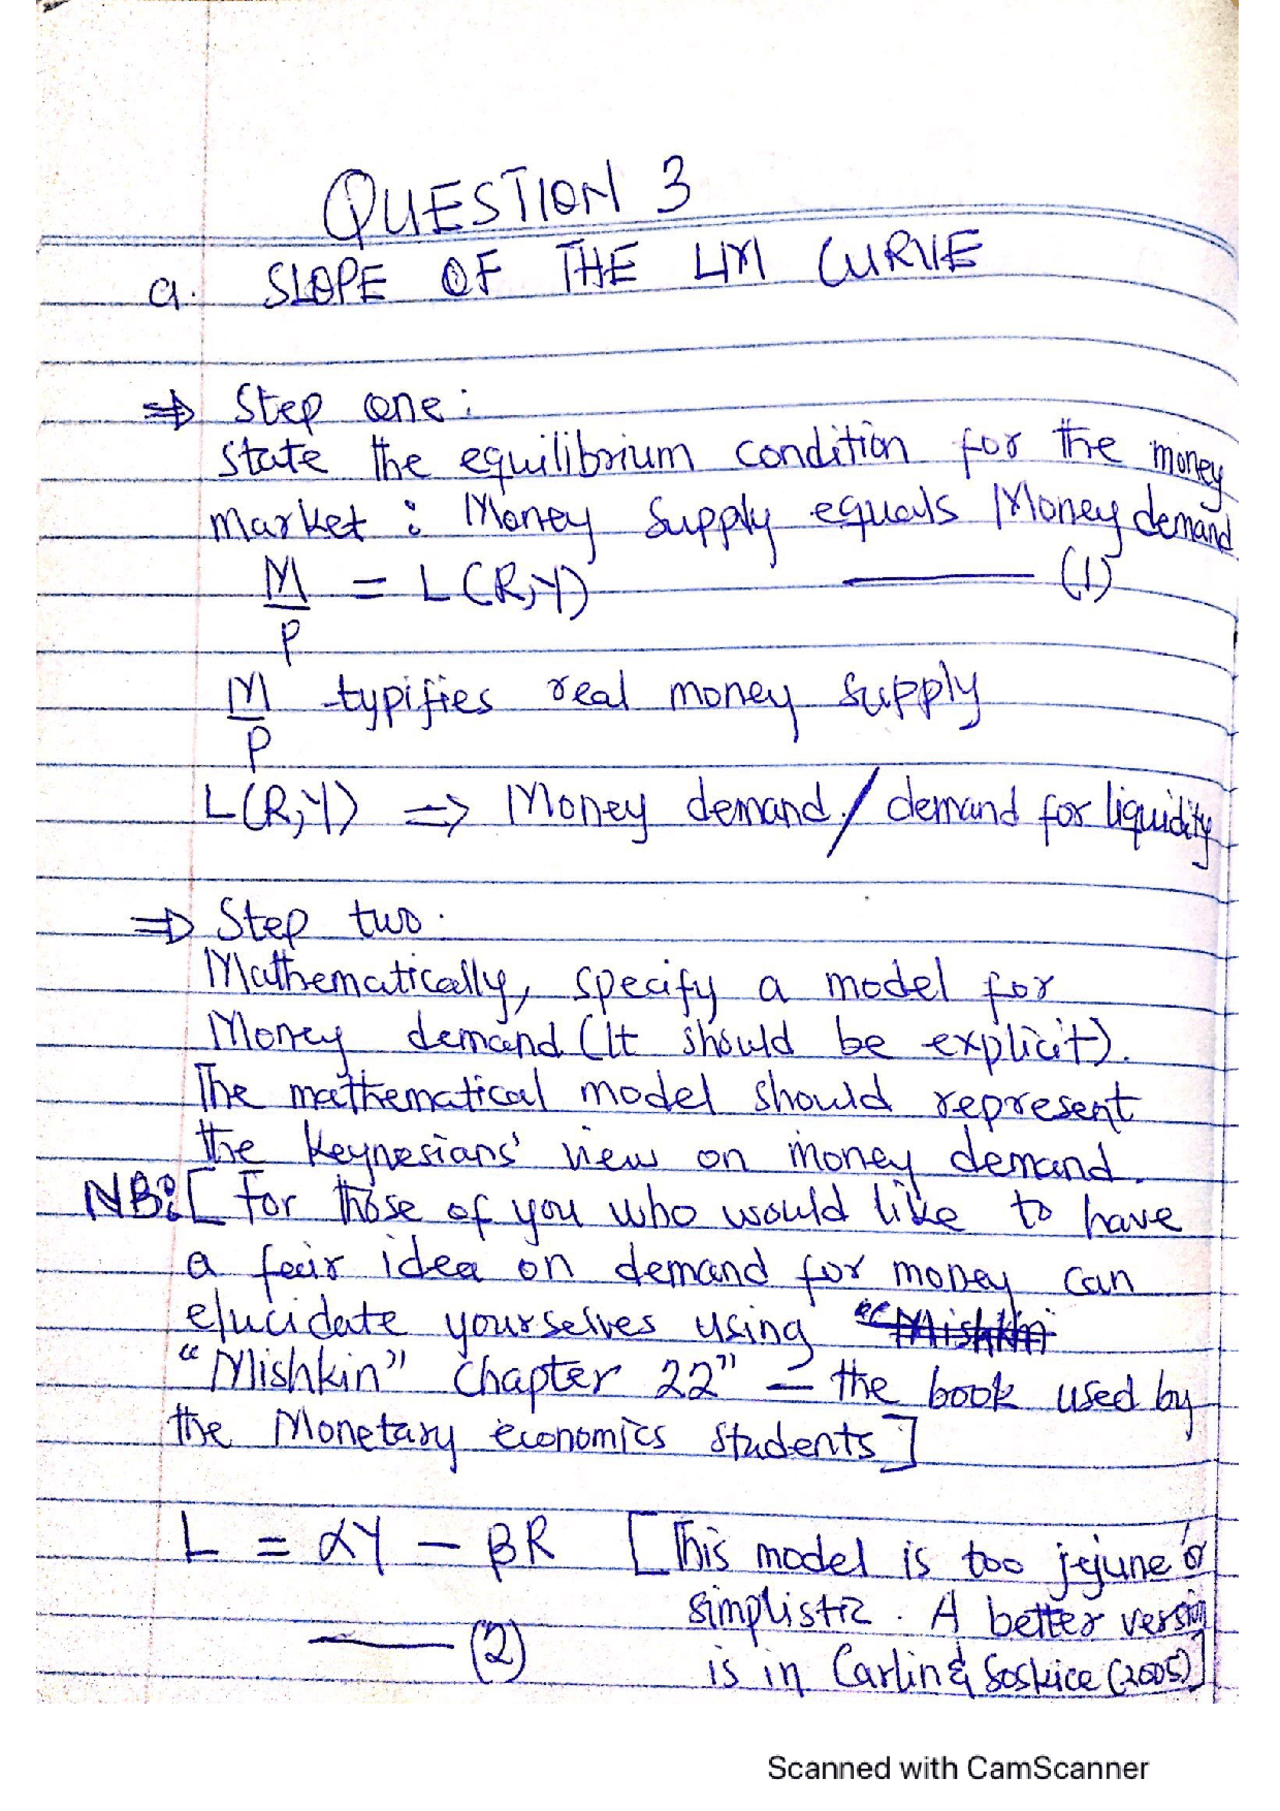 QUESTION 3
a. SLOPE OF THE LM CURVE
⇒ Step one:
State the equilibrium condition for the money
market: Money supply equals Money demand
M/P = L(R,Y) ——— (1)
M/P typifies real money supply
L(R,Y) ⇒ Money demand/demand for liquidity
⇒ Step two.
Mathematically, specify a model for
Money demand (It should be explicit).
The mathematical model should represent
the Keynesians' view on money demand.
NB:[ For those of you who would like to have
a fair idea on demand for money can
elucidate yourselves using "Mishkin
"Mishkin" Chapter 22" – the book used by
the Monetary economics students]
L = αY – βR [This model is too jejune or
simplistic. A better version
——— (2) is in Carlin & Soskice (2005)]
Scanned with CamScanner